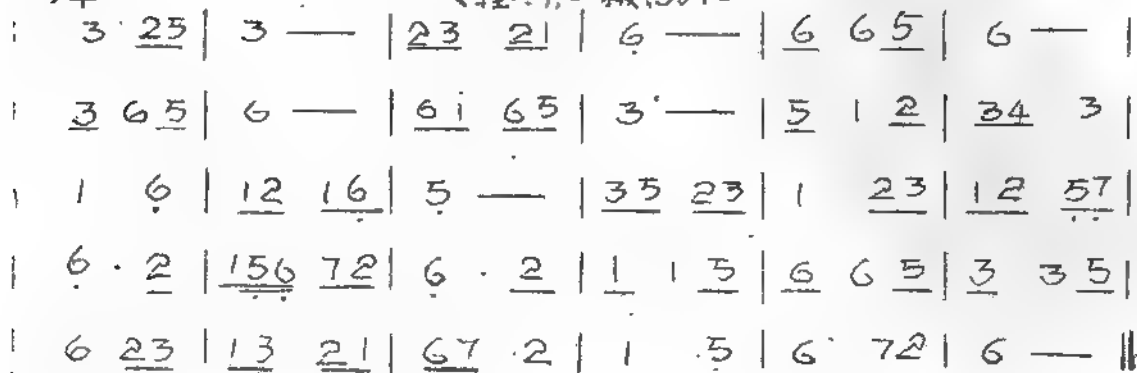 3 · 25 | 3 — | 23 21 | 6̣ — | 6 6 5 | 6 — |
3 6 5 | 6 — | 6 i 6 5 | 3 — | 5 1 2 | 34 3 |
1 6̣ | 12 16̣ | 5̣ — | 35 23 | 1 23 | 12 5̣7̣ |
6̣ · 2 | 15̣6̣ 72 | 6̣ · 2 | 1 1 5 | 6 6 5 | 3 3 5 |
6 23 | 13 21 | 67 · 2 | 1 · 5 | 6 72 | 6 — ‖